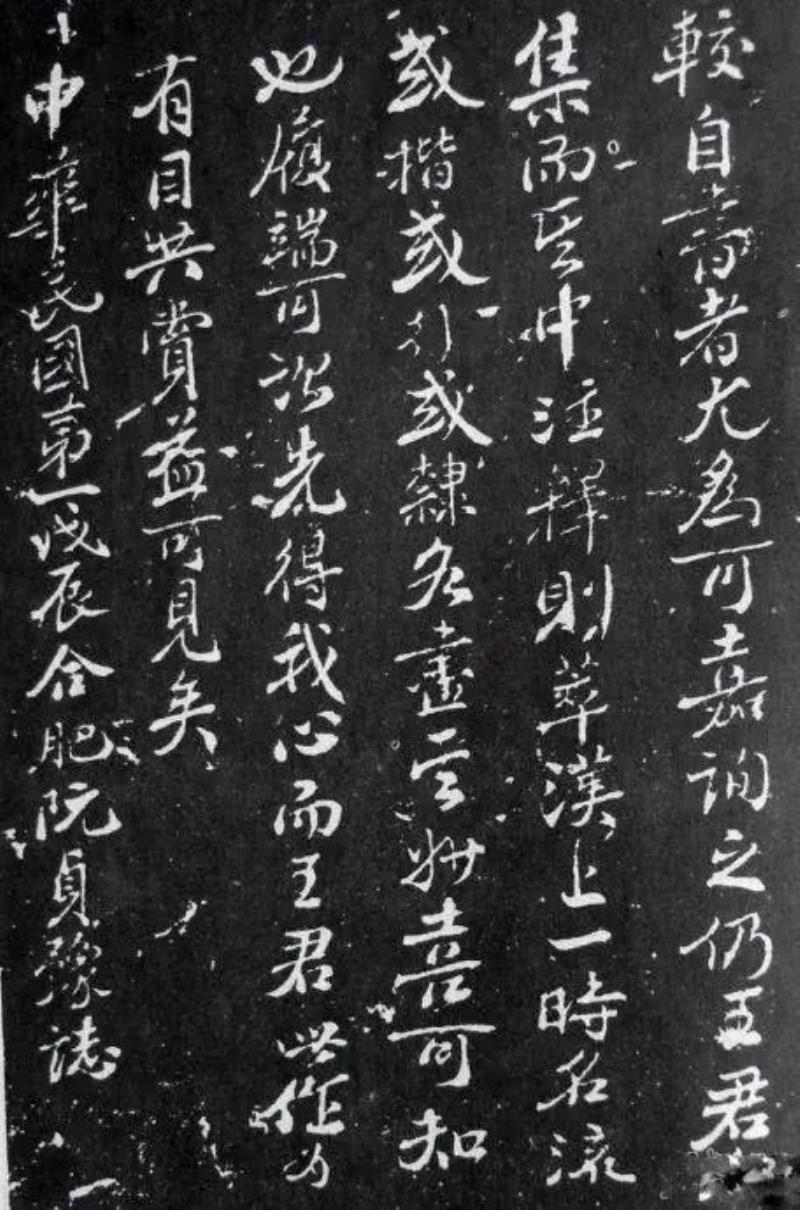 較自者尤為可嘉詢之仍王君
集而其中注釋則萃漢上一時名流
或楷或行或隸各盡其妙喜可知
也履端可謂先得我心而王君此作為
有目共賞益可見矣
中華民國第一戊辰合肥阮貞豫誌